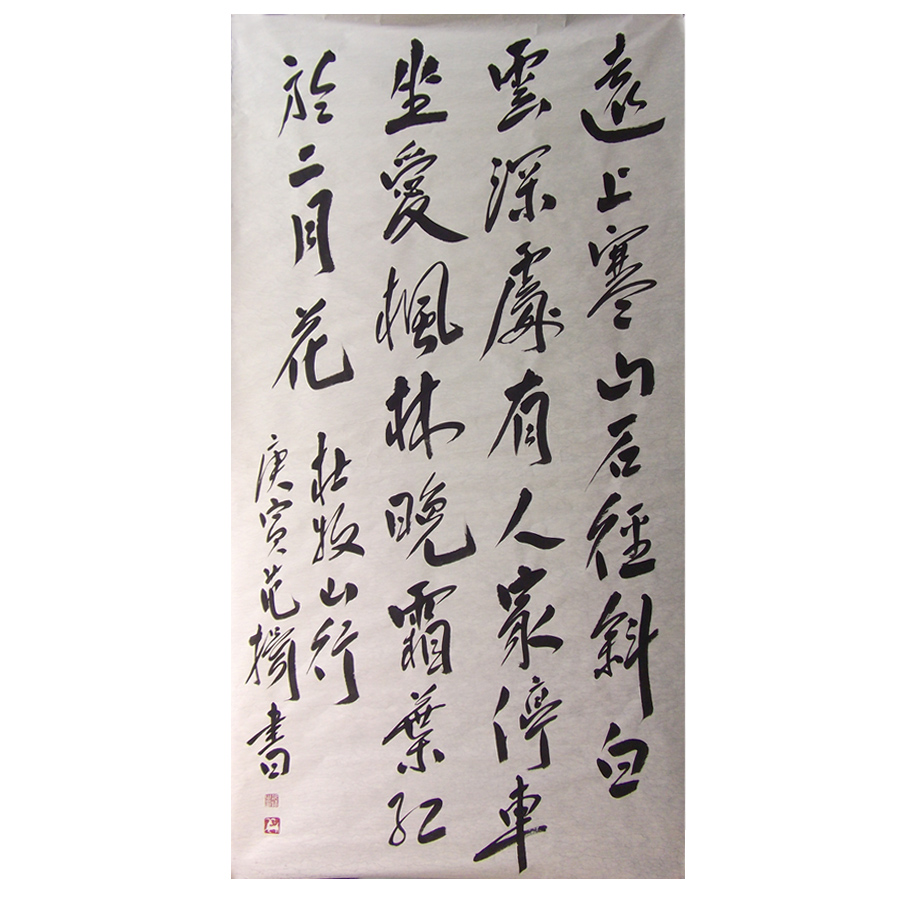 遠上寒山石徑斜白
雲深處有人家停車
坐愛楓林晚霜葉紅
於二月花
杜牧山行
庚寅范書